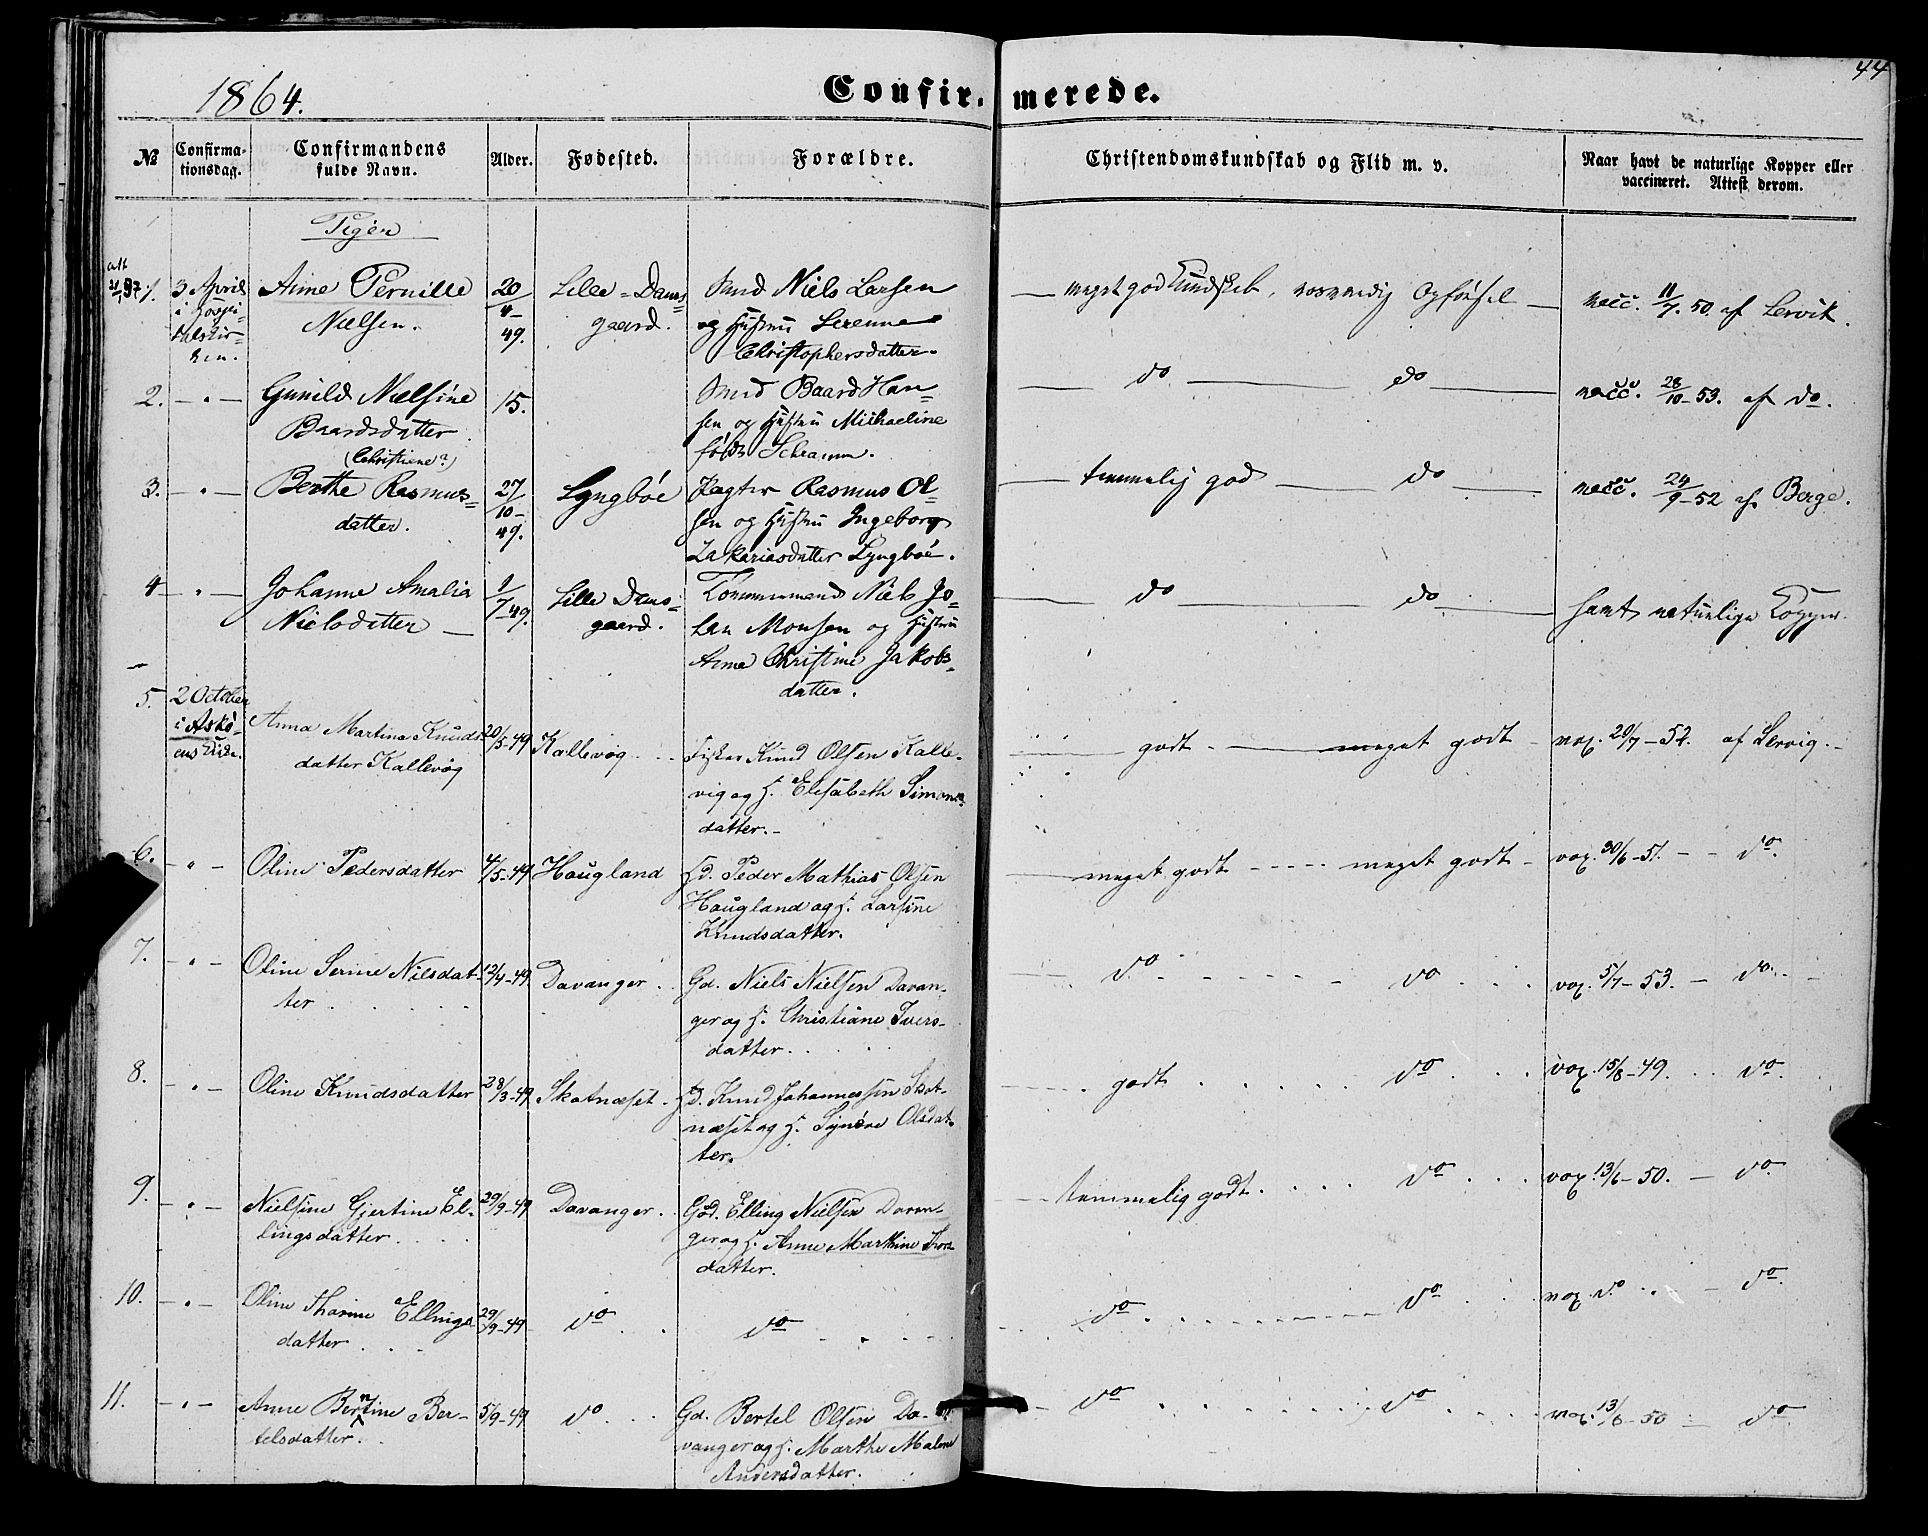 44
1864.
Confirmerede.
№
Confirmationsdag.
Confirmandens fulde Navn.
Alder.
Fødested.
Forældre.
Christendomskundskab og Flid m. v.
Naar havt de naturlige Kopper eller vaccineret. Attest derom.
Piger
1. 3 April i Hospitalskirken.
Anne Pernille
Nielsen.
20/4-49.
Lille-Dams=
gaard.
Smed Niels Larsen
og Hustru Serenne
Christophersdatter.
meget god Kundskab,
Opførsel
vacc. 11/7.50. af Lervik.
2. - " -
Gunild Nielsine
Baardsdatter
15.
Smed Baard Han=
sen og Hustru Michaeline
født Schramm.
do do
vacc. 28/10-53. af do.
(Christiene?)
3. - " -
Berthe Rasmus=
datter.
27/10-49.
Lyngbøe
Pagter Rasmus Ol=
sen og Hustru Ingeborg
Zakariasdatter Lyngbøe.
temmelig god do
vacc. 24/9-52 af Berge.
4 - " -
Johanne Amalia
Nielsdatter
1/7-49.
Lille Dams=
gaard.
Niels Jo=
han Monsen og Hustru
Anne Christine Jakobs=
datter.
do do
havt naturlige Kopper.
5. 2 October
i Askø-
ens Kirke.
Anna Martina Knuds
datter Kallevog
20/5-49
Kallevog
Fisker Knud Olsen Kalle-
vig og H. Elisabeth Simons
datter.
godt meget godt
vax. 20/7-52. af Lervig.
6. - " -
Oline Pedersdatter
4/5-49
Haugland
Hd. Peder Mathias Olsen
Haugland og H. Larsine
Knudsdatter.
meget godt meget godt
vax. 30/6-51. do.
7. - " -
Oline Serine Nilsdat-
ter
12/4-49.
Davanger
Gd. Niels Nielsen Davan-
ger og H. Christiane Ivers-
datter.
do do
vax. 5/7-53. do.
8. - " -
Oline Knudsdatter
28/3-49
Skatnæset.
Hd. Knud Johannessen Skat-
næset og H. Synøve Olsdat-
ter.
godt do
vax. 15/8-49. do.
9. - " -
Nielsine Gjertine El-
lingsdatter
29/9-49
Davanger.
Gd. Elling Nielsen Davan-
ger og H. Anne Marthine Ivers
datter.
temmelig godt. do
vax. 13/6-50. do.
10. - " -
Oline Tharine Ellings
datter
29/9-49
do
do
do do
vax. do do.
11. - " -
Anne Berntine Ber-
telsdatter.
5/9-49
do
Gd. Bertel Olsen Da-
vanger og H. Marthe Malene
Andersdatter.
do do
vax. 13/6-50 do